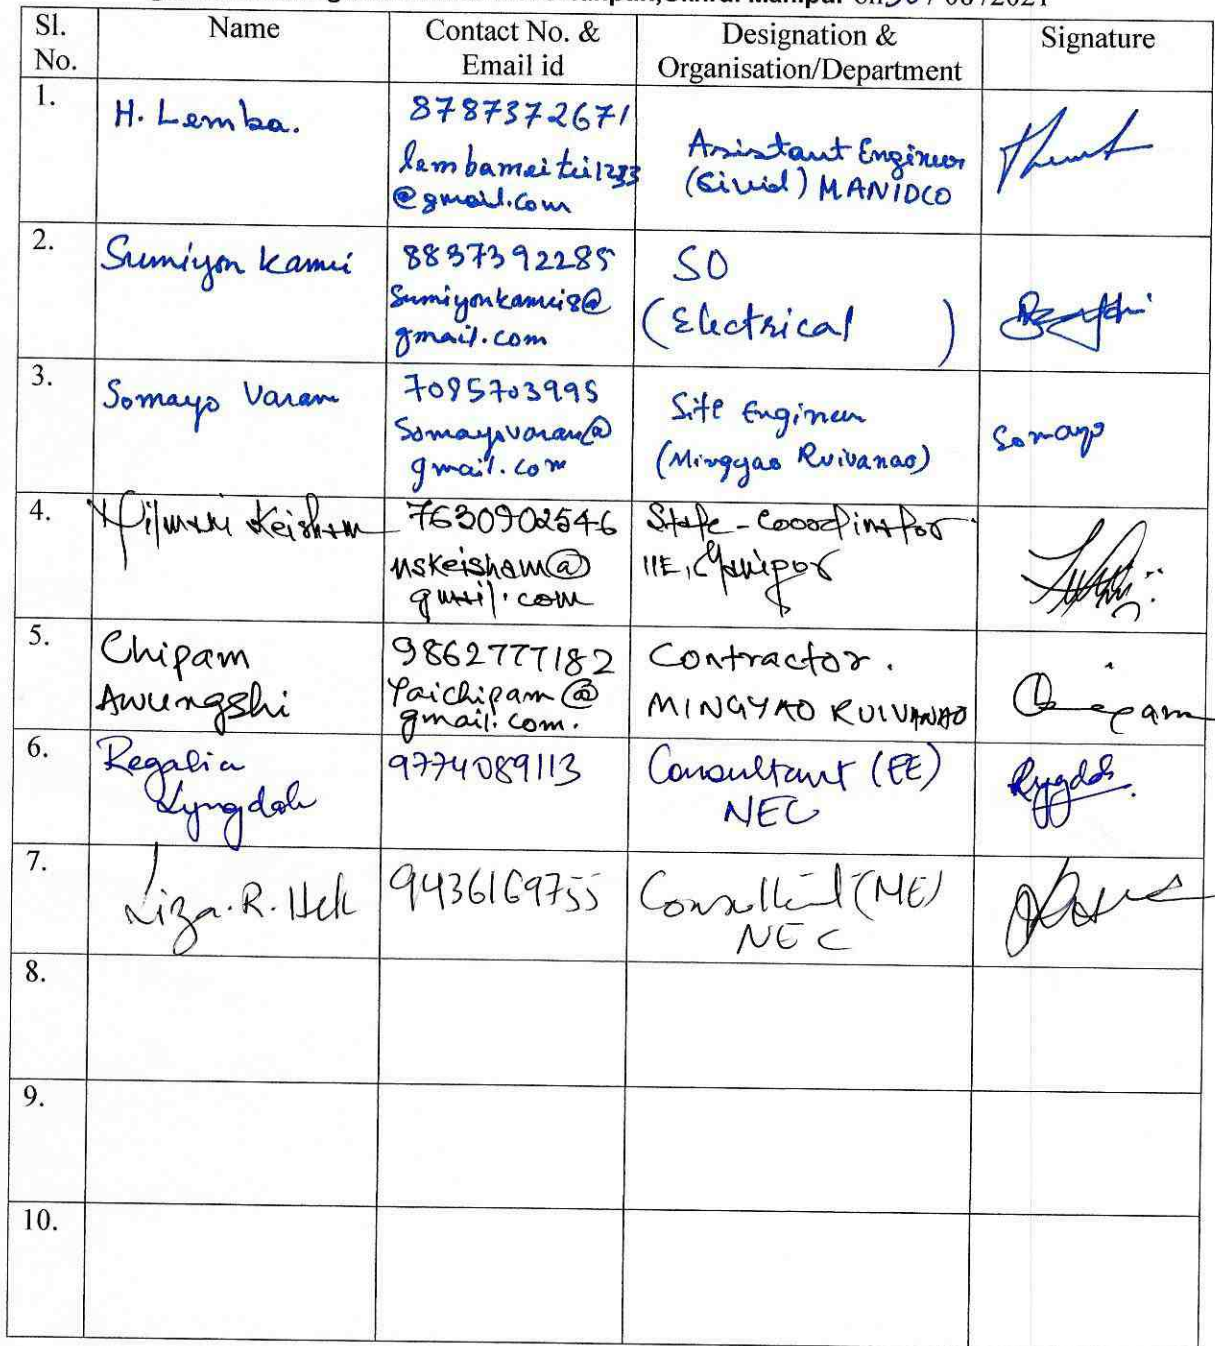 Manipur on 30 / 08 /2021
Sl. No.
Name
Contact No. &
Email id
Designation &
Organisation/Department
Signature
1.
H. Lemba.
8787372671
lembameitei1233
@gmail.com
Assistant Engineer
(Civil) MANIDCO
2.
Sumiyon Kamei
8837392285
Sumiyonkamei8@
gmail.com
SO
(Electrical )
3.
Somayo Varam
7085703995
Somayovaram@
gmail.com
Site Engineer
(Mingyao Ruivanao)
Somayo
4.
Keisham
7630902546
nskeisham@
gmail.com
State-Coordinator
IIE, Manipur
5.
Chipam
Awungshi
9862777182
Yaichipam@
gmail.com.
Contractor.
MINGYAO RUIVANAO
Chipam
6.
Regalia
Lyngdoh
9774089113
Consultant (EE)
NEC
7.
Liza. R. Hek
9436169755
Consultant (ME)
NEC
8.
9.
10.